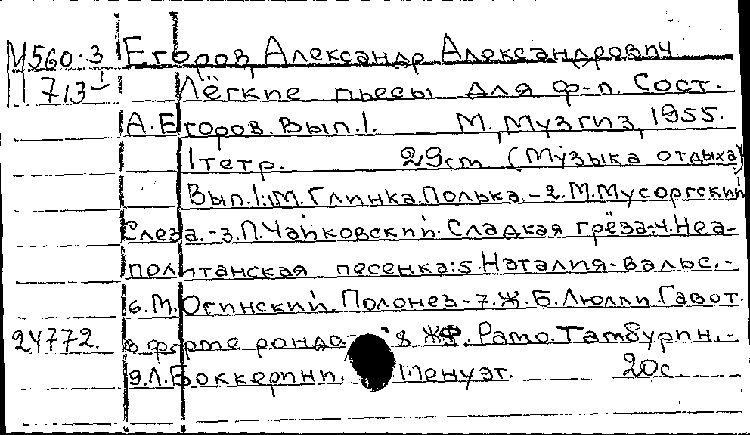 М560:3 Егоров, Александр Александрович
П 713-1 Лёгкие пьесы для ф-п. Сост.
А. Егоров. Вып.1. М., Музгиз, 1955.
1 тетр. 29см (Музыка отдыха)
Вып.1: 1.М. Глинка. Полька. - 2. М. Мусоргский
Слеза. - 3. П. Чайковский. Сладкая грёза: 4. Неа-
политанская песенка: 5. Наталия-вальс. -
6. М. Огинский. Полонез - 7. Ж. Б. Люлли. Гавот.
24772. в форме рондо - 8 Ж.Ф. Рамо. Тамбурин. -
9. Л. Боккерини. Менуэт. 20с.